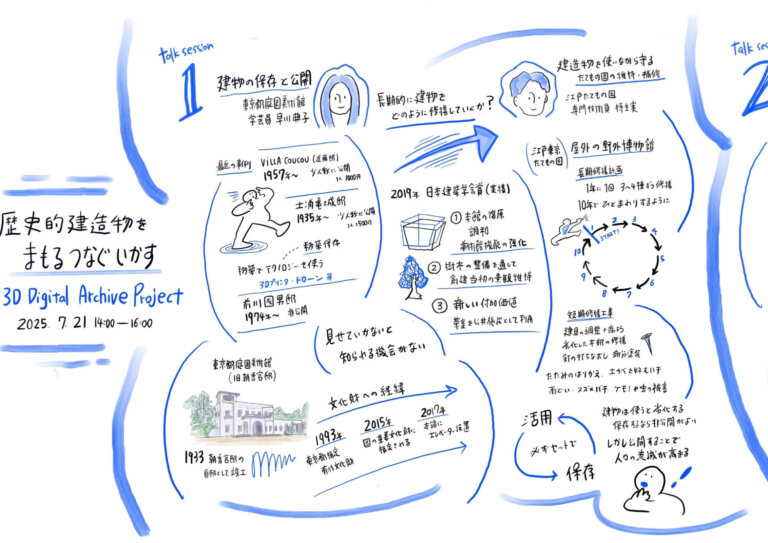 歴史的建造物を
まもるつなぐいかす
3D Digital Archive Project
2025. 7. 21 14:00—16:00
talk session
1
建物の保存と公開
東京都庭園美術館
学芸員 早川典子
長期的に建物を
どのように修復していくか？
建造物を使いながら守る
たてもの園の維持・補修
江戸たてもの園
専門技術員
最近の事例
VILLA COUCOU (近藤邸)
1957年〜
少人数に公開
土浦亀城邸
1935年〜
少人数に公開
に1500円
動態保存
でテクノロジーを使う
3Dプリンタ・ドローン 等
前川國男邸
1974年〜 非公開
見せていかないと
知られる機会がない
2019年 日本建築学会賞(業績)
① 本館の復原
調和
美術館機能の強化
② 樹木の整備を通して
創建当初の景観維持
③ 新しい付加価値
茶室を公共施設として利用
江戸東京
たてもの園
屋外の野外博物館
長期修繕計画
1年に1回 3〜4棟ずつ修復
10年でひとまわりするように
START!
1
2
3
4
5
6
7
8
9
10
短期修繕工事
建具の調整
劣化した木部の修復
釘の打ちなおし
たたみのはりかえ
雨どい・スズメバチ
東京都庭園美術館
(旧朝香宮邸)
1933 朝香宮邸の
自邸として竣工
文化財への経緯
1993年
東京都指定
有形文化財
2015年
国の重要文化財に
指定される
2017年
本館に
エレベーター設置
活用
セットで
保存
建物は使うと劣化する
保存だけなら非公開がよい
しかし公開することで
人々の意識が高まる
talk session
2